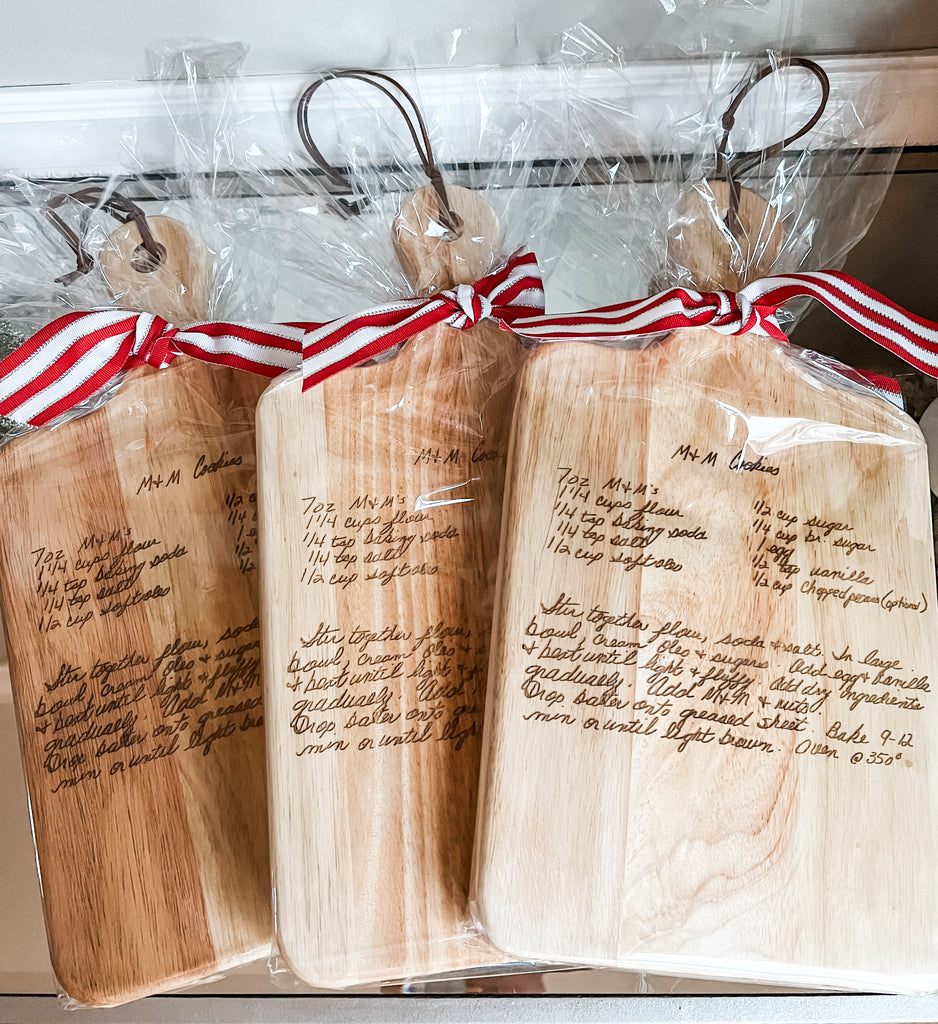 M+M Cookies
7oz M+M's
1 1/4 cups flour
1/4 tsp baking soda
1/4 tsp salt
1/2 cup soft oleo
1/2 c
1/4 c
1
1/2
1/2
Stir together flour, soda
bowl, cream oleo + sugars
+ beat until light + fluffy
gradually. Add M+M
Drop batter onto greased
min or until light br
M+M Coo
7oz M+M's
1 1/4 cups flour
1/4 tsp baking soda
1/4 tsp salt
1/2 cup soft oleo
Stir together flour,
bowl, cream oleo +
+ beat until light +
gradually. Add
Drop batter onto
min or until light
M+M Cookies
7oz M+M's
1 1/4 cups flour
1/4 tsp baking soda
1/4 tsp salt
1/2 cup soft oleo
1/2 cup sugar
1/4 cup br. sugar
1 egg
1/2 tsp vanilla
1/2 cup chopped pecans (optional)
Stir together flour, soda + salt. In large
bowl, cream oleo + sugars. Add egg + vanilla
+ beat until light + fluffy. Add dry ingredients
gradually. Add M+M + nuts.
Drop batter onto greased sheet. Bake 9-12
min or until light brown. Oven @ 350°.